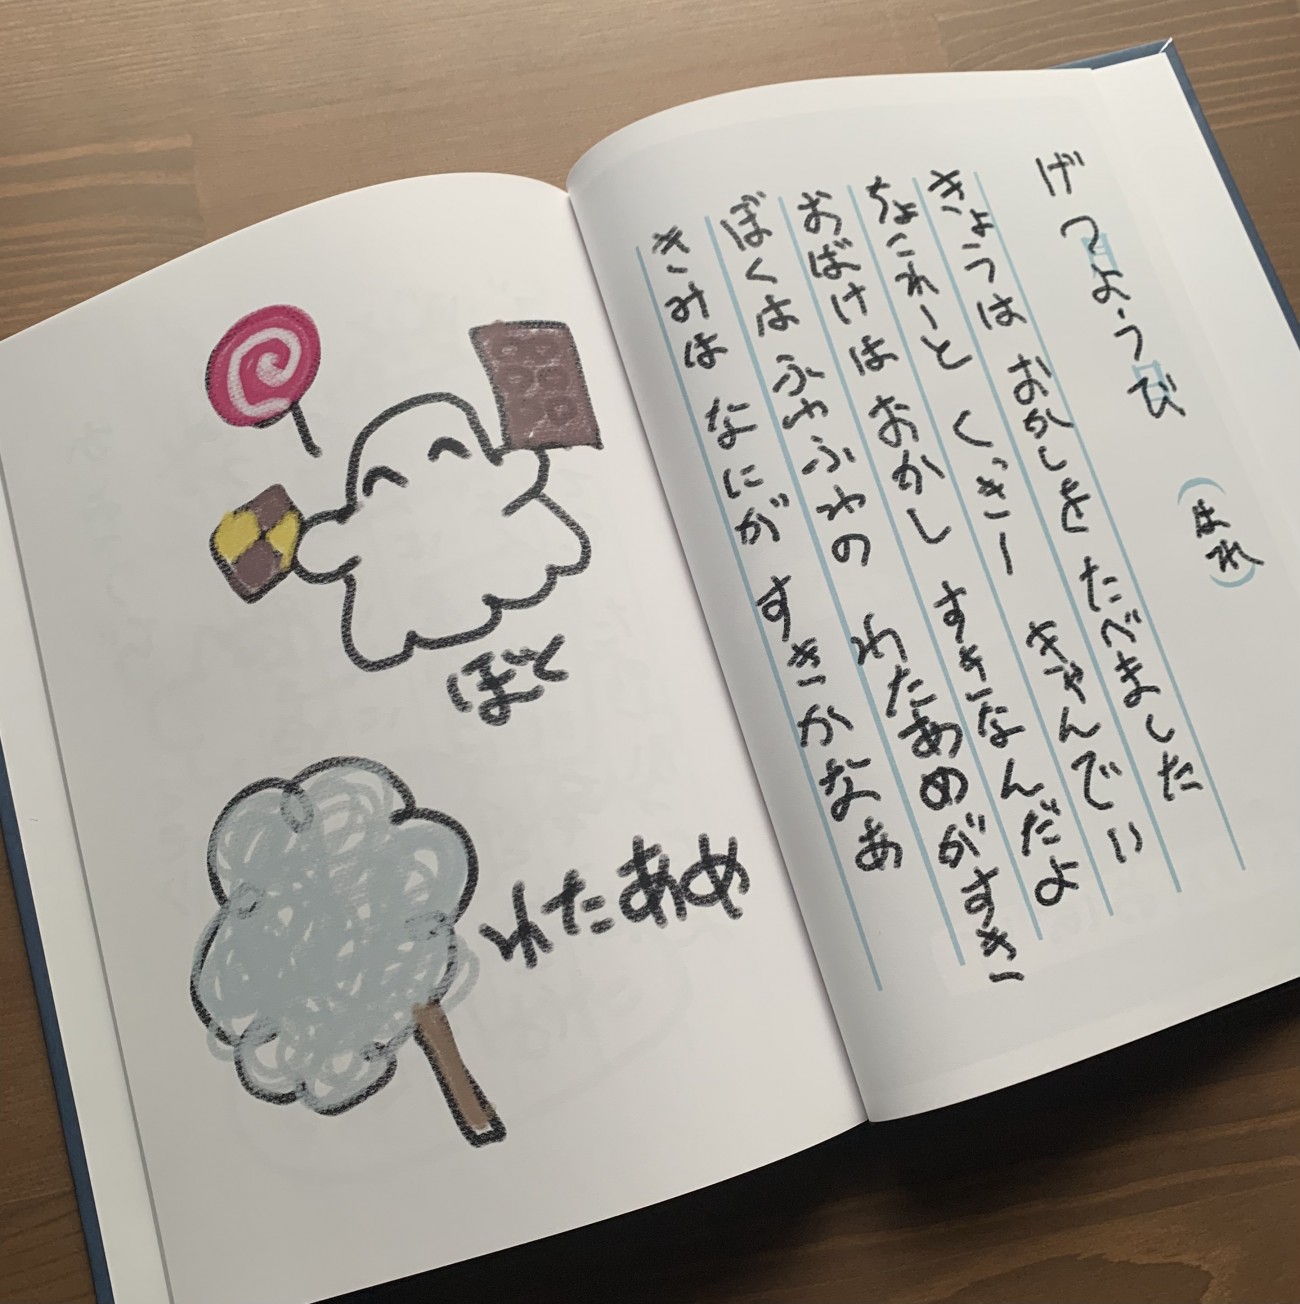 げつようび (はれ)
きょうは おかしを たべました
ちょこれーと くっきー きゃんでい
おばけは おかし すきなんだよ
ぼくは ふわふわの わたあめがすき
きみは なにが すきかなあ
ぼと
わたあめ